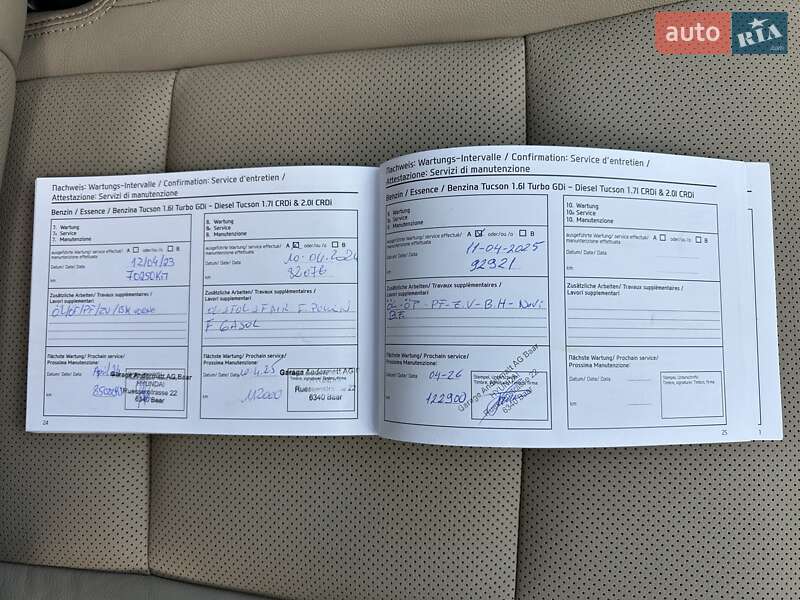 auto RIA
Nachweis: Wartungs-Intervalle / Confirmation: Service d'entretien /
Attestazione: Servizi di manutenzione
Benzin / Essence / Benzina Tucson 1.6l Turbo GDi – Diesel Tucson 1.7l CRDi & 2.0l CRDi
7. Wartung
7e Service
7. Manutenzione
ausgeführte Wartung/ service effectué/
manutenzione effettuata
A B oder/ou /o
Datum/ Date/ Data
12/04/23
km
70250KM
Zusätzliche Arbeiten/ Travaux supplémentaires /
Lavori supplementari
Nächste Wartung/ Prochain service/
Prossima Manutenzione:
Datum/ Date/ Data
April 24
km
Garage Andermatt AG Baar
HYUNDAI
Ruessenstrasse 22
6340 Baar
24
8. Wartung
8e Service
8. Manutenzione
ausgeführte Wartung/ service effectué/
manutenzione effettuata
A oder/ou /o B
Datum/ Date/ Data
10.04.2024
km
92076
Zusätzliche Arbeiten/ Travaux supplémentaires /
Lavori supplementari
Nächste Wartung/ Prochain service/
Prossima Manutenzione:
Datum/ Date/ Data
4.25
km
112000
Garage Andermatt AG
6340 Baar
Nachweis: Wartungs-Intervalle / Confirmation: Service d'entretien /
Attestazione: Servizi di manutenzione
Benzin / Essence / Benzina Tucson 1.6l Turbo GDi – Diesel Tucson 1.7l CRDi & 2.0l CRDi
9. Wartung
9e Service
9. Manutenzione
ausgeführte Wartung/ service effectué/
manutenzione effettuata
A oder/ou /o B
Datum/ Date/ Data
11-04-2025
km
92921
Zusätzliche Arbeiten/ Travaux supplémentaires /
Lavori supplementari
ÖL-ÖF-PF-Z.V-B.H-Navi
B.F.
Nächste Wartung/ Prochain service/
Prossima Manutenzione:
Datum/ Date/ Data
04-26
km
122900
Garage Andermatt AG Baar
HYUNDAI
6340 Baar
10. Wartung
10e Service
10. Manutenzione
ausgeführte Wartung/ service effectué/
manutenzione effettuata
A oder/ou /o B
Datum/ Date/ Data
km
Zusätzliche Arbeiten/ Travaux supplémentaires /
Lavori supplementari
Nächste Wartung/ Prochain service/
Prossima Manutenzione:
Datum/ Date/ Data
km
Stempel, Unterschrift
Timbre, signature/ Timbro, firma
25
1